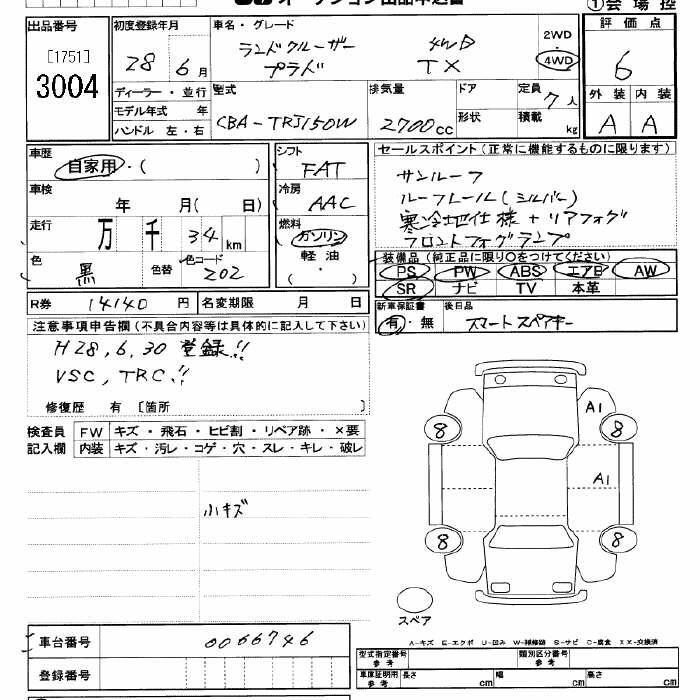 ①会場控
出品番号
[1751]
3004
初度登録年月
28年6月
車名・グレード
ランドクルーザー 4WD
プラド TX
2WD
4WD
評価点
6
ディーラー・並行
モデル年式 年
ハンドル 左・右
型式
CBA-TRJ150W
排気量
2700cc
ドア
形状
定員
7人
積載
kg
外装 内装
A A
車歴
自家用・( )
車検
年 月( 日)
走行
万 千 34 km
色
黒
色替
色コード
202
シフト
FAT
冷房
AAC
燃料
ガソリン
軽油
( ・ )
セールスポイント(正常に機能するものに限ります)
サンルーフ
ルーフレール(シルバー)
寒冷地仕様+リアフォグ
フロントフォグランプ
装備品(純正品に限り○をつけてください)
PS PW ABS エアB AW
SR ナビ TV 本革
R券 14140円 名変期限 月 日
新車保証書
有・無
後日品
スマートスペアキー
注意事項申告欄(不具合内容等は具体的に記入して下さい)
H28,6,30登録!!
VSC,TRC!!
修復歴 有 [箇所 ]
検査員 FW キズ・飛石・ヒビ割・リペア跡・×要
記入欄 内装 キズ・汚レ・コゲ・穴・スレ・キレ・破レ
小キズ
A1
8 8
A1
8 8
スペア
A-キズ E-エクボ U-凹み W-補修跡 S-サビ C-腐食 XX-交換済
車台番号 0066746
登録番号
型式指定番号
参考
類別区分番号
参考
車庫証明用
参考
長さ cm 幅 cm 高さ cm